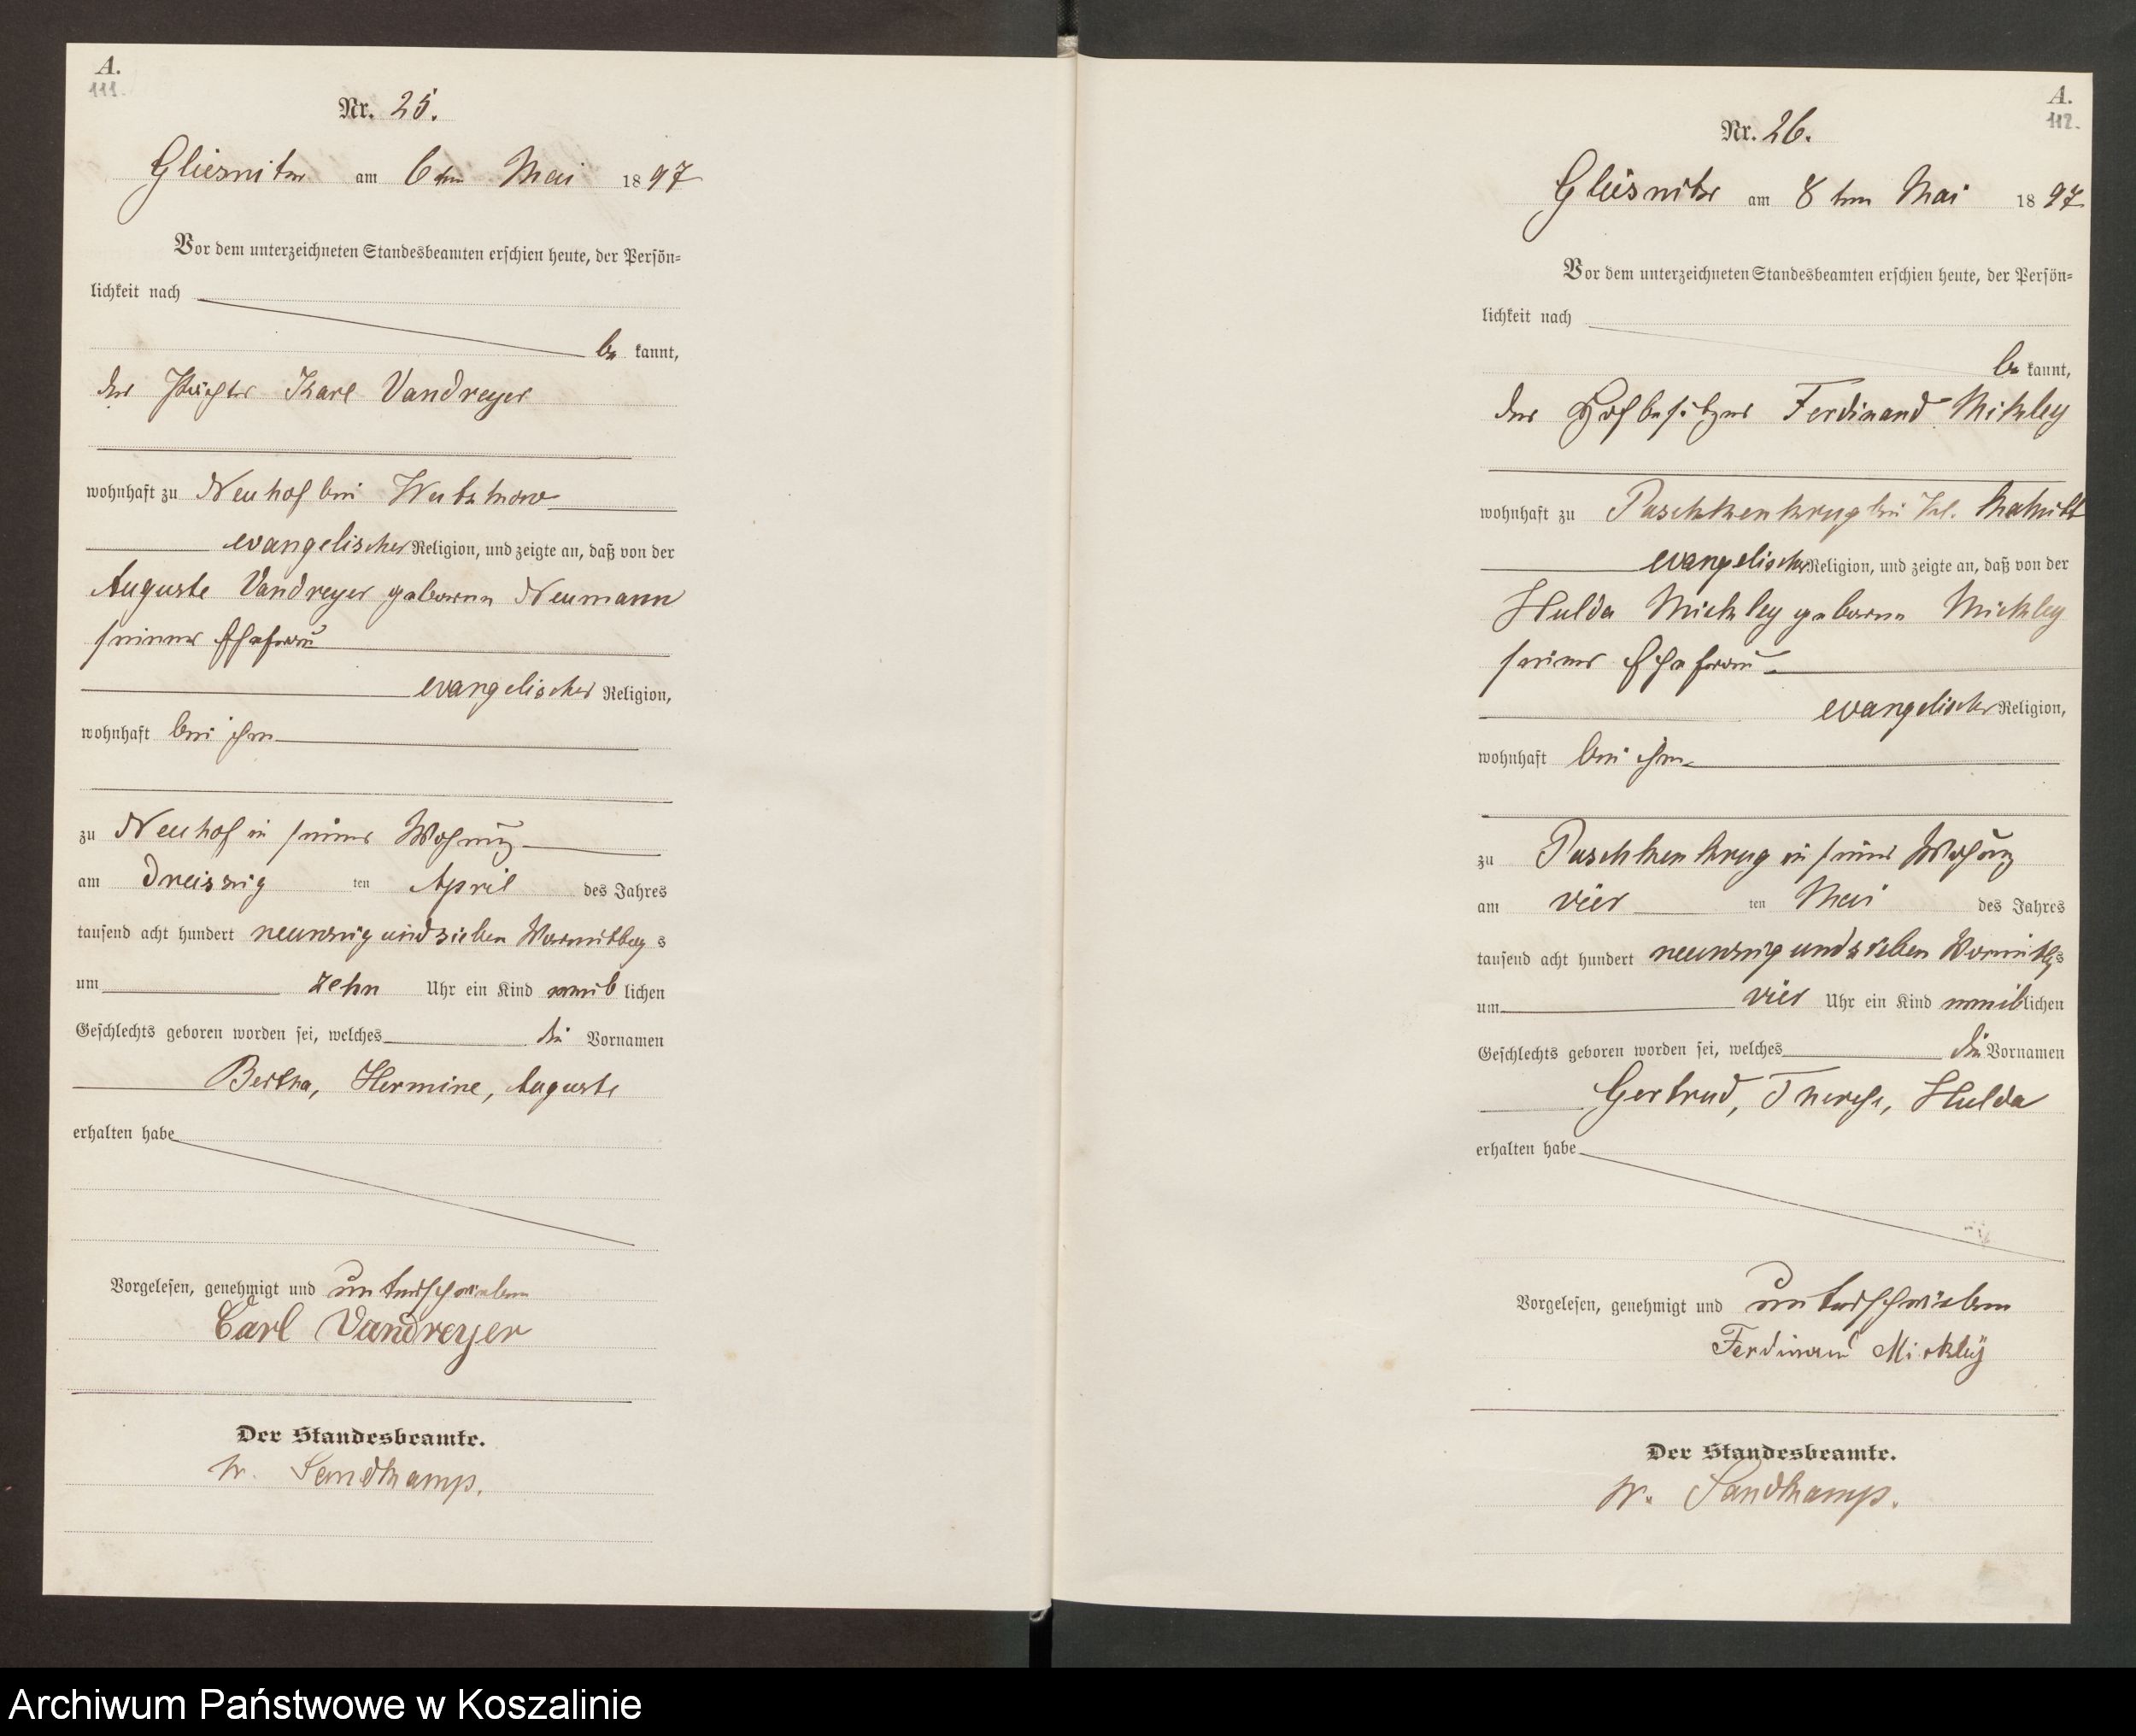 A.
111.
Nr. 25.
Gliesnitz am 6ten Mai 1897
Vor dem unterzeichneten Standesbeamten erschien heute, der Persön-
lichkeit nach
be kannt,
der Pächter Karl Vandreyer
wohnhaft zu Neuhof bei Wutzkow
evangelischer Religion, und zeigte an, daß von der
Auguste Vandreyer geborene Neumann
seiner Ehefrau
evangelischer Religion,
wohnhaft bei ihm
zu Neuhof in seiner Wohnung
am dreiszig ten April des Jahres
tausend acht hundert neunzig und sieben Vormittags
um zehn Uhr ein Kind weib lichen
Geschlechts geboren worden sei, welches die Vornamen
Bertha, Hermine, Auguste
erhalten habe
Vorgelesen, genehmigt und unterschrieben
Carl Vandreyer
Der Standesbeamte.
Sandkamp.
A.
112.
Nr. 26.
Gliesnitz am 8ten Mai 1897
Vor dem unterzeichneten Standesbeamten erschien heute, der Persön-
lichkeit nach
be kannt,
der Hofbesitzer Ferdinand Mickley
wohnhaft zu Paschkenkrug bei Kl.
evangelischer Religion, und zeigte an, daß von der
Hulda Mickley geborene Mickley
seiner Ehefrau
evangelischer Religion,
wohnhaft bei ihm
zu Paschkenkrug in seiner Wohnung
am vier ten Mai des Jahres
tausend acht hundert neunzig und sieben Vormittags
um vier Uhr ein Kind weiblichen
Geschlechts geboren worden sei, welches die Vornamen
Gertrud, Therese, Hulda
erhalten habe
Vorgelesen, genehmigt und unterschrieben
Ferdinand Mickley
Der Standesbeamte.
Sandkamp.
Archiwum Państwowe w Koszalinie